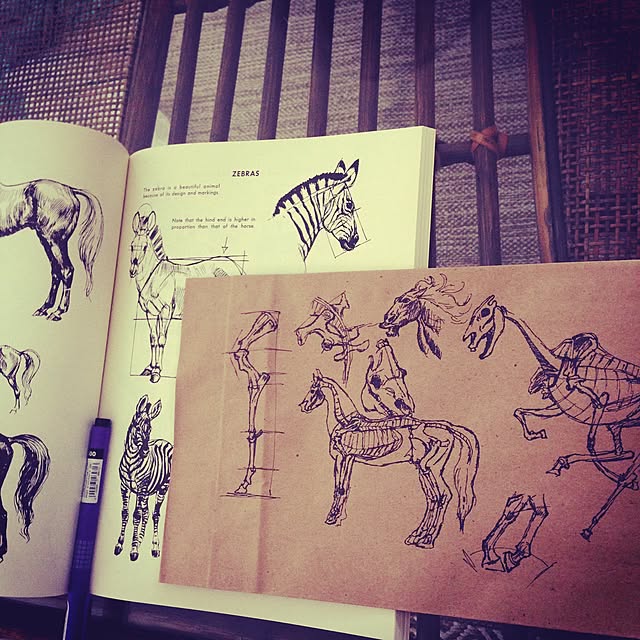 ZEBRAS
The zebra is a beautiful animal
because of its design and markings.
Note that the hind end is higher in
proportion than that of the horse